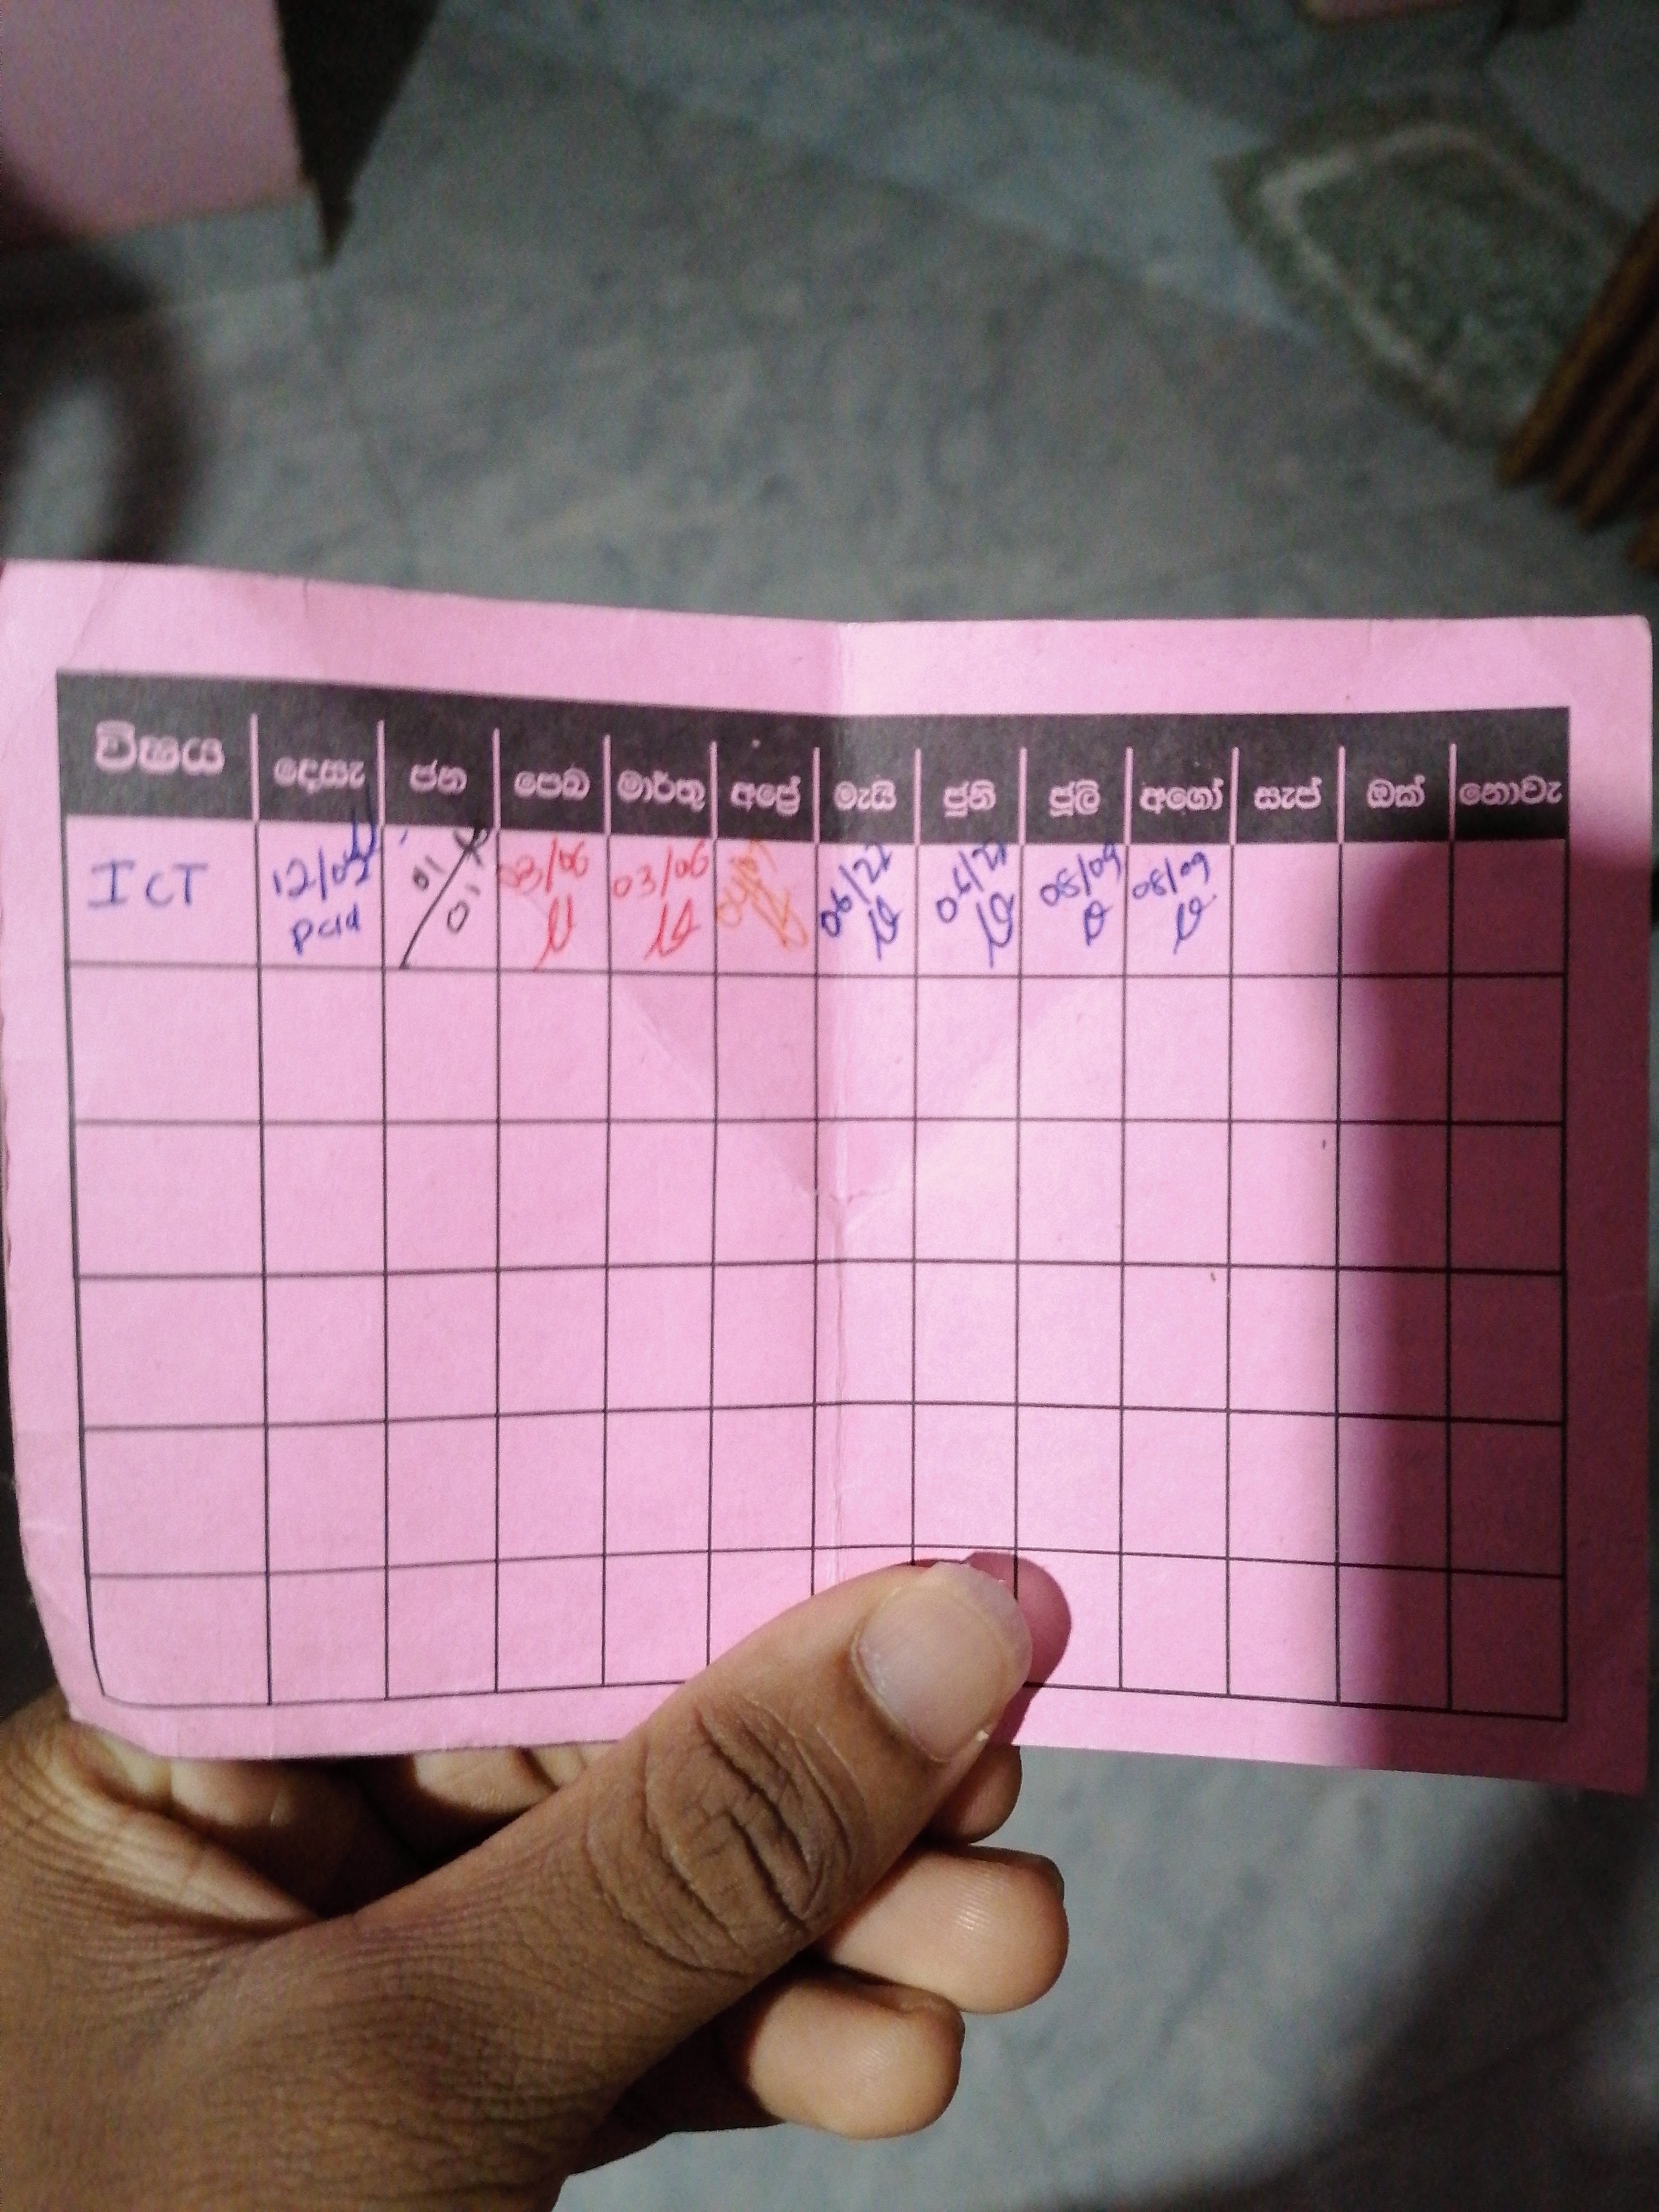 විෂය දෙසැ ජන පෙබ මාර්තු අප්‍රේ මැයි ජුනි ජූලි අගෝ සැප් ඔක් නොවැ
ICT 12/03 01/01 03/06 03/06 06/27 06/27 08/09 08/09
paid